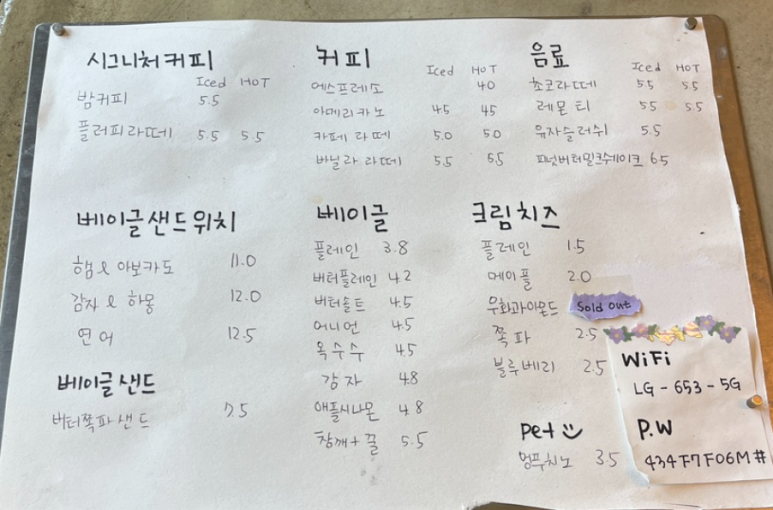 시그니처 커피
Iced HOT
밤커피 5.5
플러피라떼 5.5 5.5
커피
Iced HOT
에스프레소 40
아메리카노 45 45
카페 라떼 5.0 50
바닐라 라떼 55 55
음료
Iced HOT
초코라떼 55 55
레몬 티 55 5.5
유자슬러쉬 5.5
피넛버터밀크쉐이크 65
베이글샌드위치
햄 & 아보카도 11.0
감자 & 하몽 12.0
연어 12.5
베이글샌드
버터쪽파샌드 7.5
베이글
플레인 3.8
버터플레인 42
버터솔트 4.5
어니언 4.5
옥수수 45
감자 48
애플시나몬 48
참깨+꿀 5.5
크림치즈
플레인 1.5
메이플 2.0
무화과아몬드 Sold out
쪽파 2.5
블루베리 2.5
Pet
멍푸치노 35
WiFi
LG-653-5G
P.W
434F7F06M#